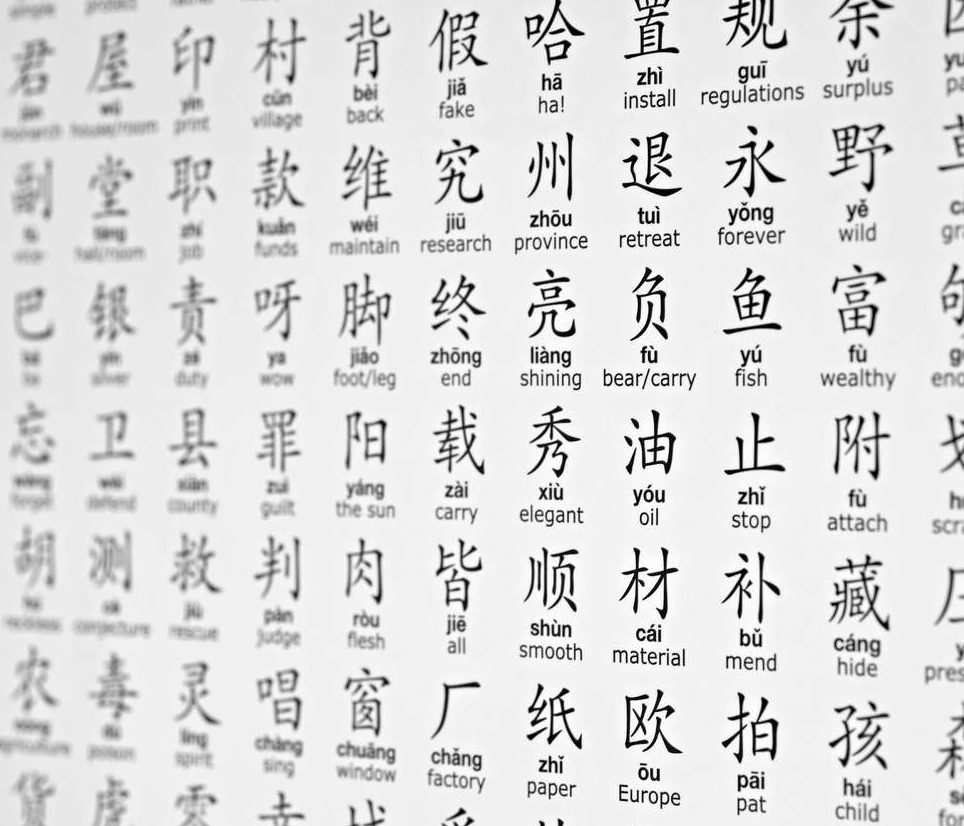 simple protect rather
君 屋 印 村 背 假 哈 置 规 余
jūn wū yìn cūn bèi jiǎ hā zhì guī yú
monarch house/room print village back fake ha! install regulations surplus
副 堂 职 款 维 究 州 退 永 野 草
fù táng zhí kuǎn wéi jiū zhōu tuì yǒng yě
hall/room job funds maintain research province retreat forever wild
巴 银 责 呀 脚 终 亮 负 鱼 富 够
bā yín zé ya jiǎo zhōng liàng fù yú fù
silver duty wow foot/leg end shining bear/carry fish wealthy
忘 卫 县 罪 阳 载 秀 油 止 附 划
wàng wèi xiàn zuì yáng zài xiù yóu zhǐ fù
forget defend county guilt the sun carry elegant oil stop attach
胡 测 救 判 肉 皆 顺 材 补 藏
hú cè jiù pàn ròu jiē shùn cái bǔ cáng
reckless conjecture rescue judge flesh all smooth material mend hide
农 毒 灵 唱 窗 厂 纸 欧 拍 孩 森
nóng dú líng chàng chuāng chǎng zhǐ ōu pāi hái
agriculture poison spirit sing window factory paper Europe pat child
货 虎 零